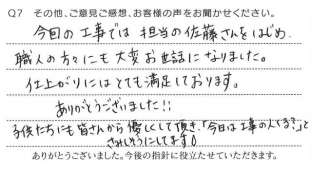 Q7 その他、ご意見ご感想、お客様の声をお聞かせください。
今回の工事では担当の佐藤さんをはじめ、
職人の方々にも大変お世話になりました。
仕上がりにはとても満足しております。
ありがとうございました!!
子供たちにも皆さんから優しくして頂き、「今日は工事の人くる?」と
さみしそうにしてます!
ありがとうございました。今後の指針に役立たせていただきます。